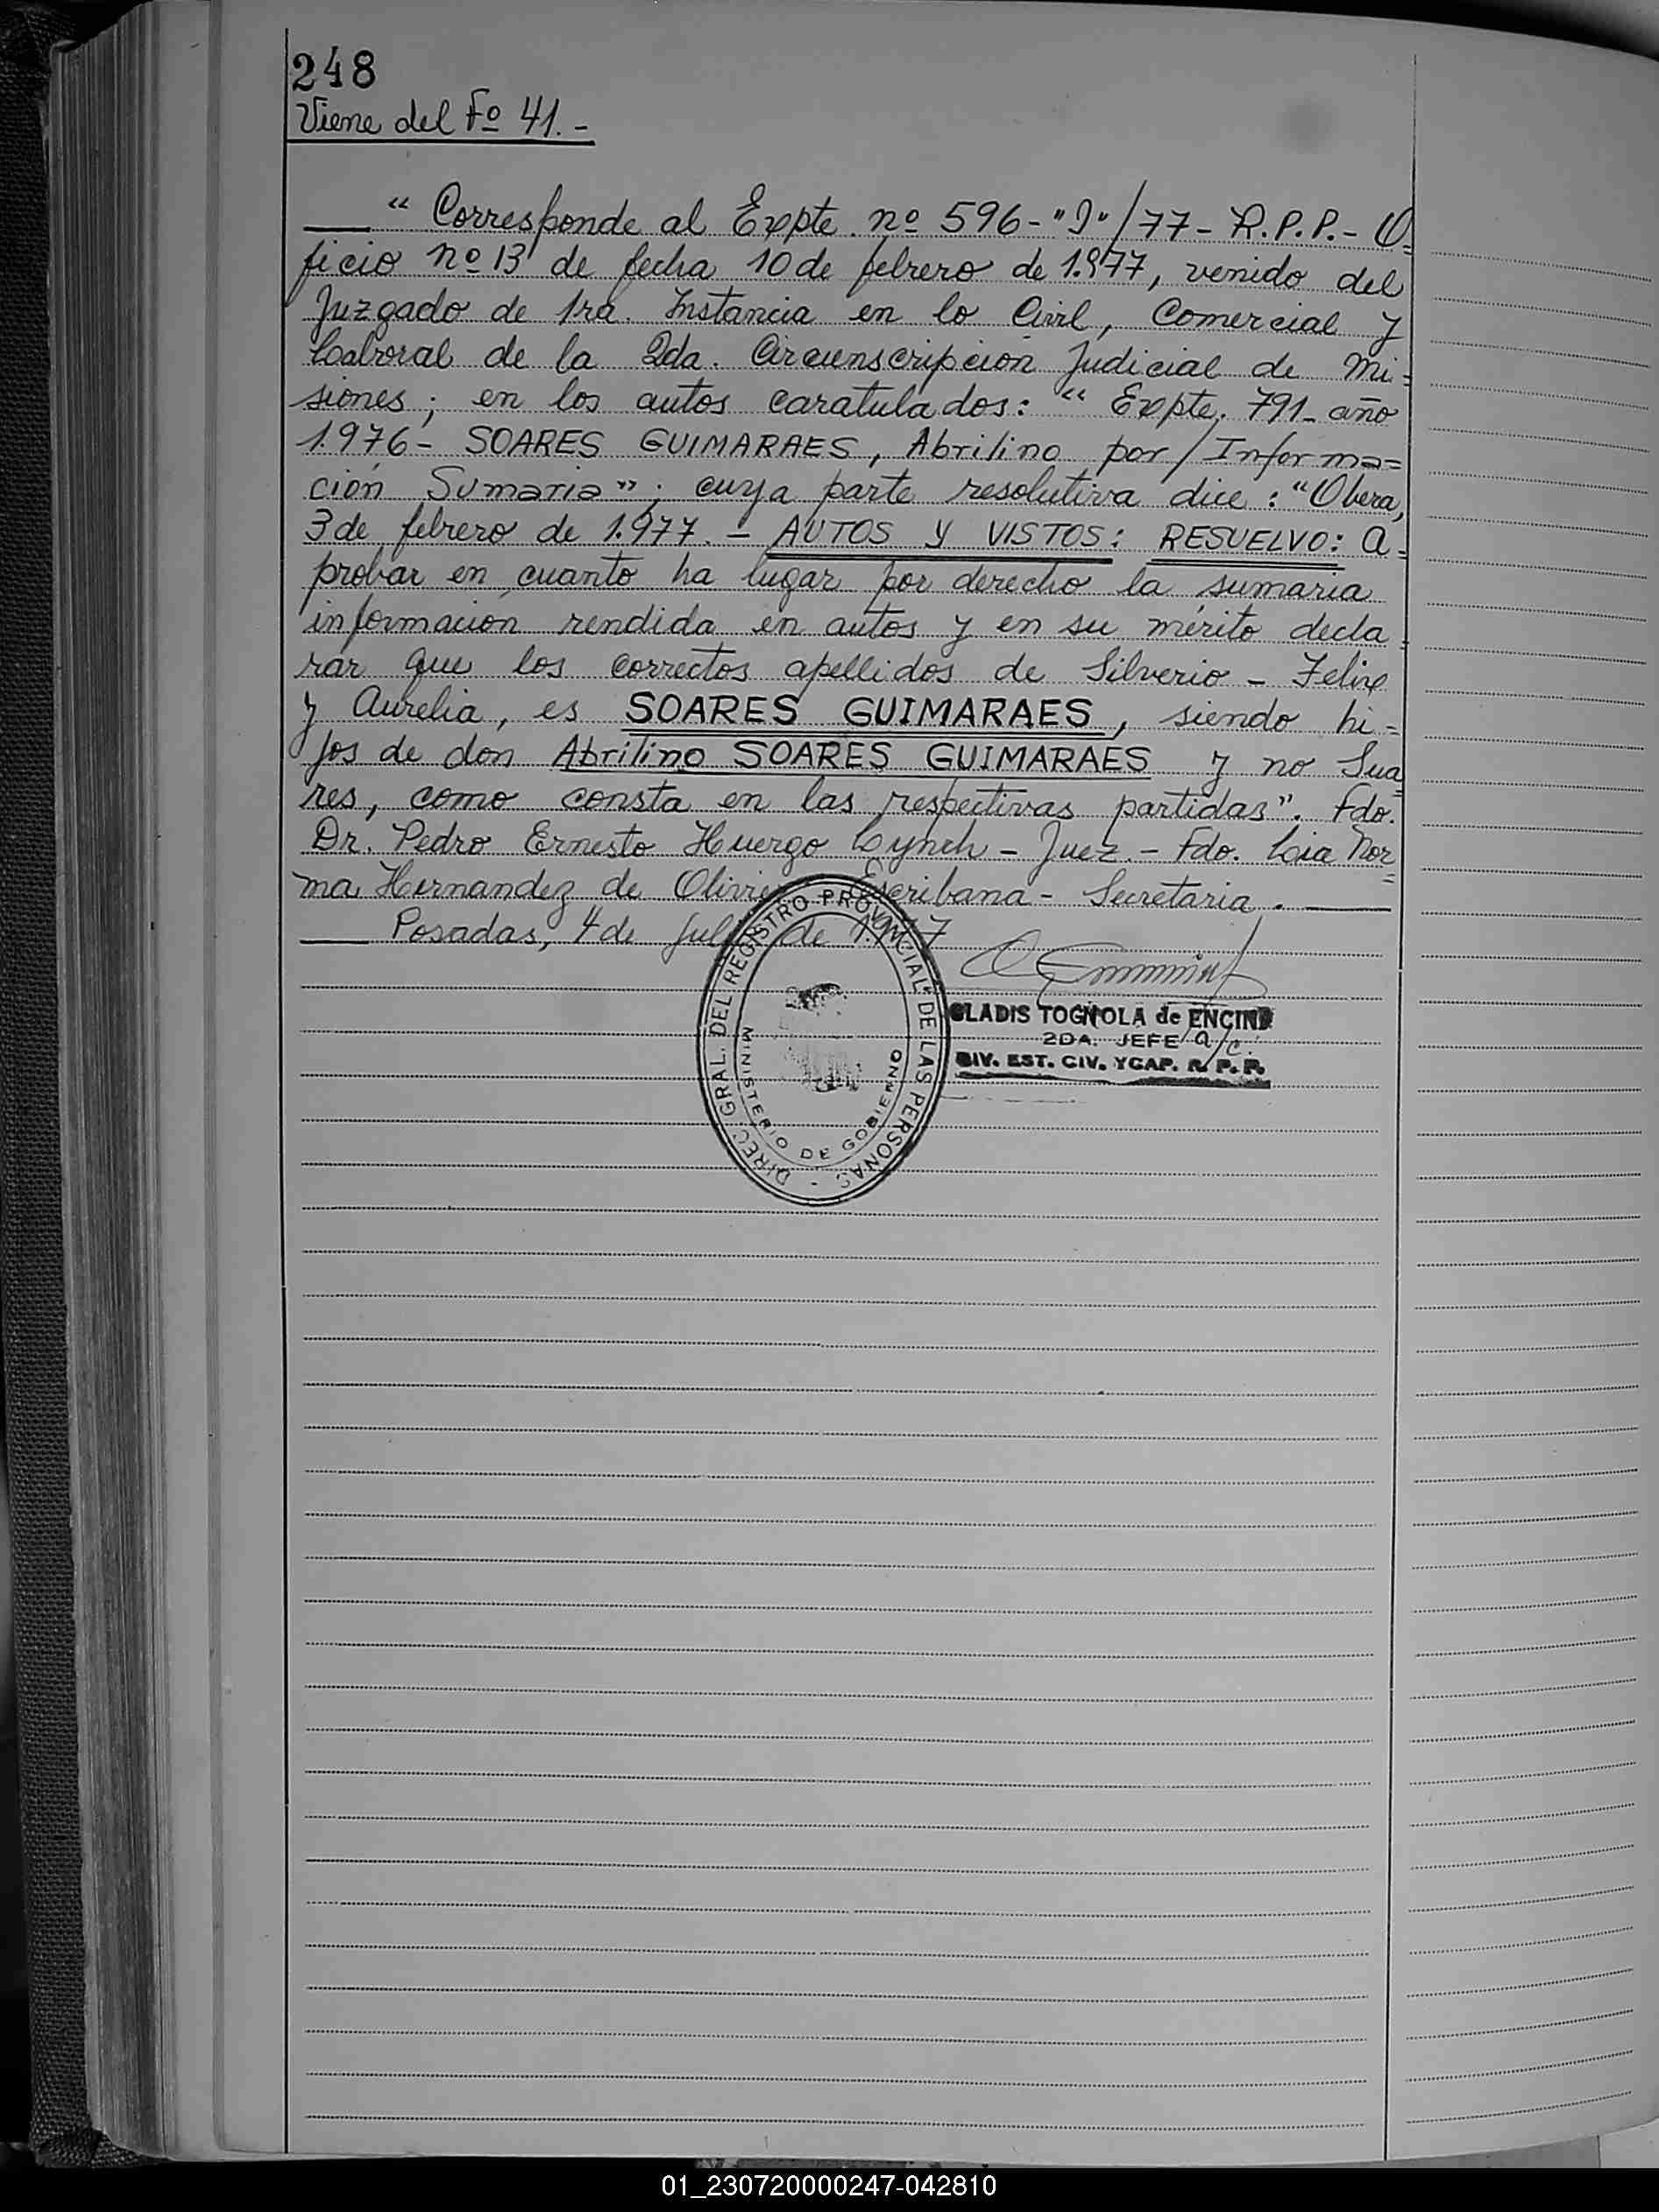 248
Viene del Fº 41.-
“ Corresponde al Expte. nº 596-"J"/77- R.P.P.- O=
ficio nº 13 de fecha 10 de febrero de 1.977, venido del
Juzgado de 1ra. Instancia en lo Civil, Comercial y
Laboral de la 2da. Circunscripción Judicial de Mi=
siones; en los autos caratulados: “ Expte. 791- año
1.976- SOARES GUIMARAES, Abrilino por/Informa=
ción Sumaria”; cuya parte resolutiva dice: “Obera,
3 de febrero de 1.977.- AUTOS Y VISTOS: RESUELVO: A=
probar en cuanto ha lugar por derecho la sumaria
información rendida en autos y en su mérito decla=
rar que los correctos apellidos de Silverio - Felix
y Aurelia, es SOARES GUIMARAES, siendo hi=
jos de don Abrilino SOARES GUIMARAES y no Sua=
res, como consta en las respectivas partidas”. Fdo.
Dr. Pedro Ernesto Huergo Lynch - Juez.- Fdo. Lia Nor=
ma Hernandez de Olivier Escribana - Secretaria.
Posadas, 4 de Julio de 1.977
DIREC. GRAL. DEL REGISTRO PROVINCIAL DE LAS PERSONAS -
MINISTERIO DE GOBIERNO
GLADIS TOGNOLA de ENCINA
2DA. JEFE a/c.
DIV. EST. CIV. Y CAP. R. P. P.
01_230720000247-042810